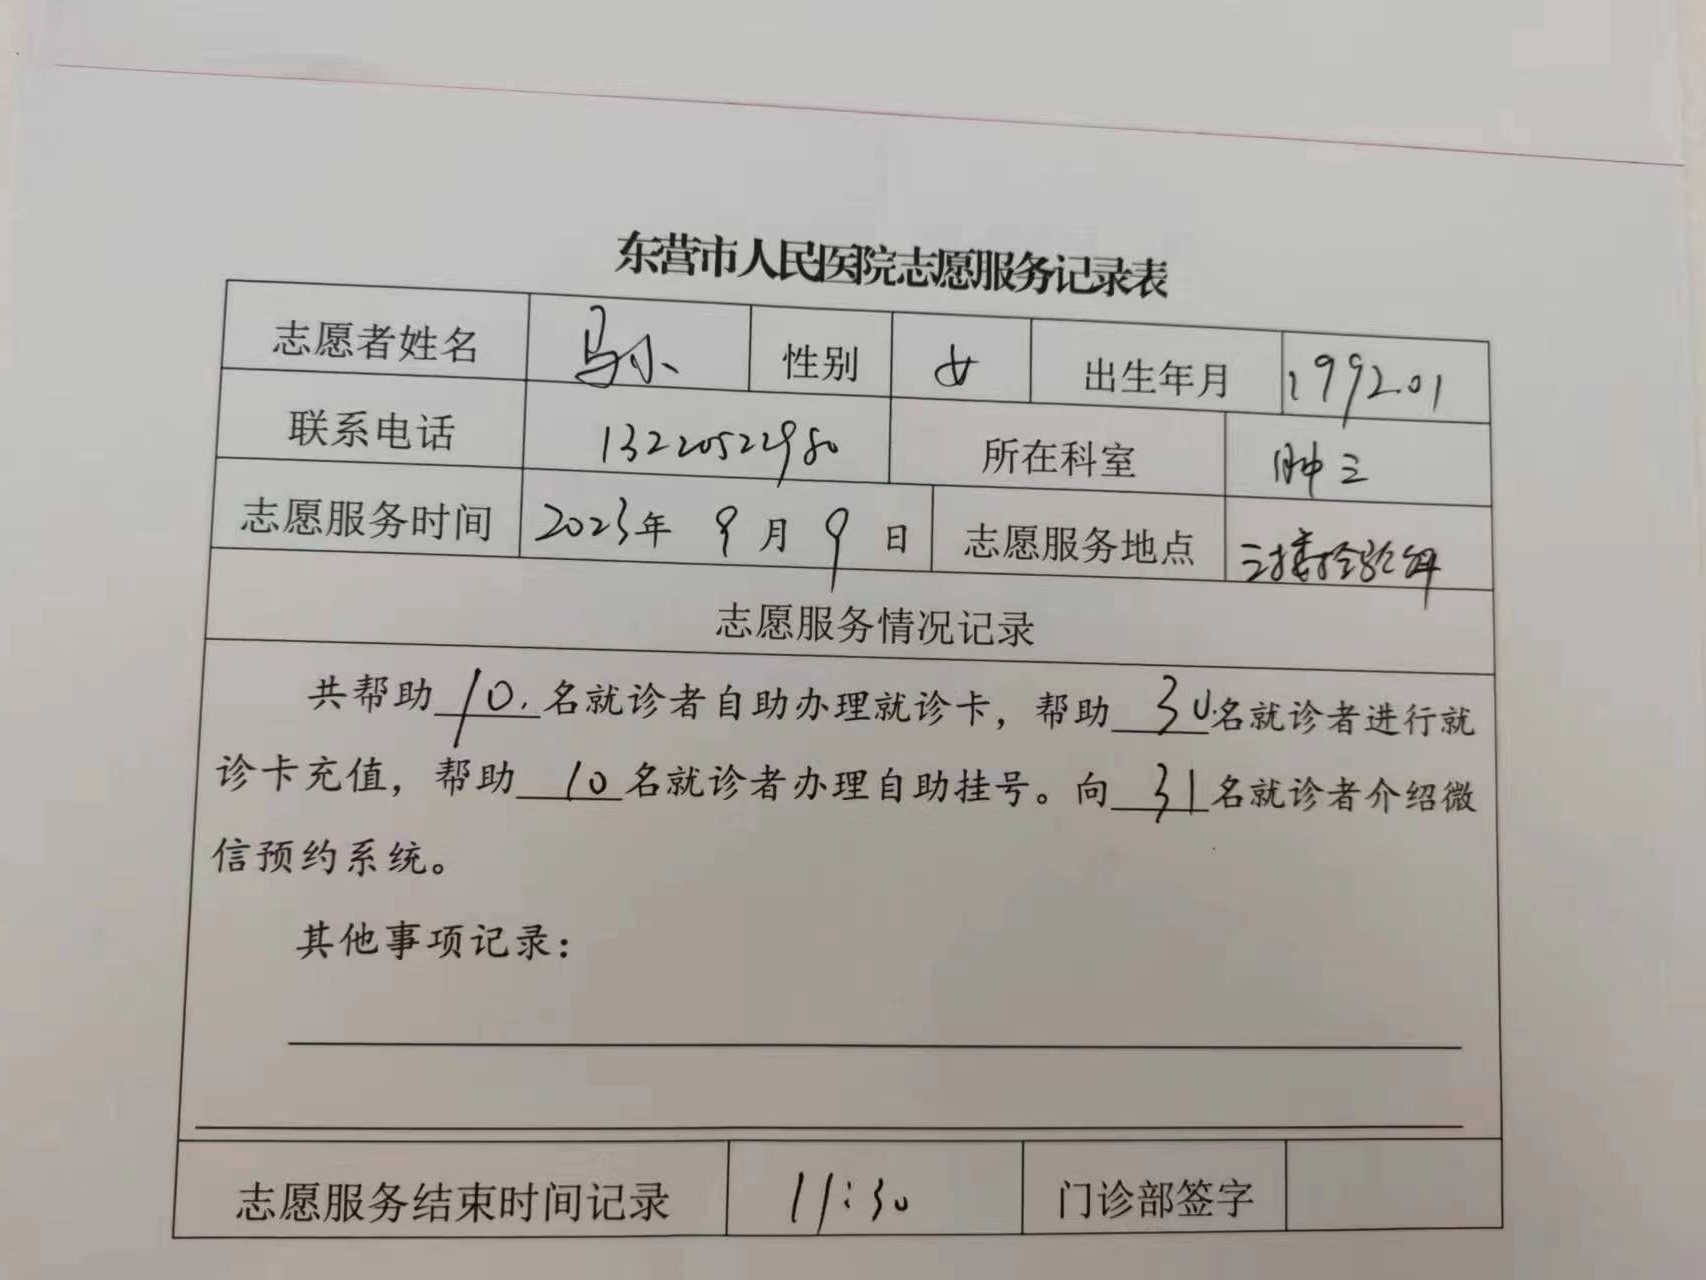 东营市人民医院志愿服务记录表
志愿者姓名 马小 性别 女 出生年月 1992.01
联系电话 13220522980 所在科室 肿三
志愿服务时间 2023年 9月9日 志愿服务地点 三楼检验科
志愿服务情况记录
共帮助10.名就诊者自助办理就诊卡，帮助30名就诊者进行就
诊卡充值，帮助10名就诊者办理自助挂号。向31名就诊者介绍微
信预约系统。
其他事项记录：
志愿服务结束时间记录 11:30 门诊部签字